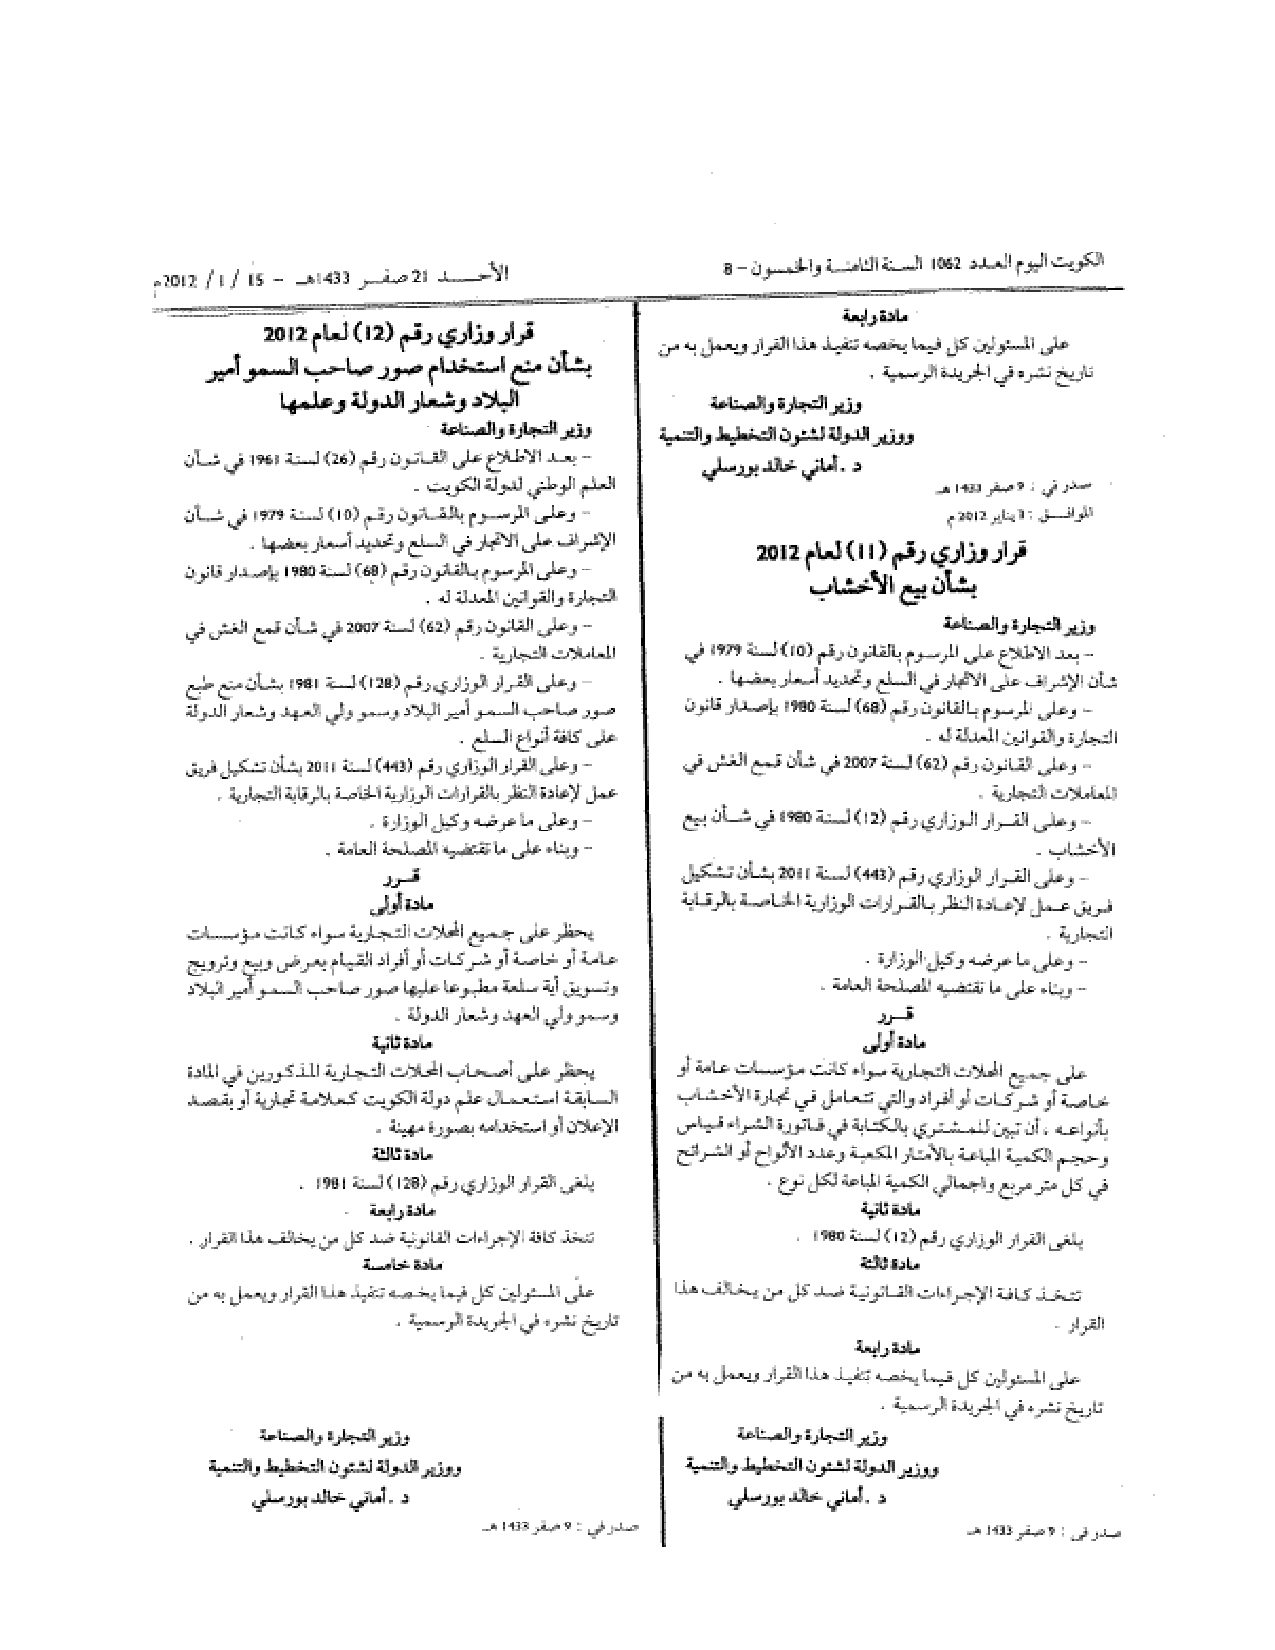 الكويت اليوم العدد 1062 السنة الثامنة والخمسون – 8
الأحــــد 21 صفــر 1433هـ – 15 / 1 / 2012م
مادة رابعة
على المسئولين كل فيما يخصه تنفيذ هذا القرار ويعمل به من
تاريخ نشره في الجريدة الرسمية .
وزير التجارة والصناعة
ووزير الدولة لشئون التخطيط والتنمية
د .أماني خالد بورسلي
صدر في : 9 صفر 1433 هـ
الموافـــق : 3 يناير 2012 م
قرار وزاري رقم (11) لعام 2012
بشأن بيع الأخشاب
وزير التجارة والصناعة
– بعد الاطلاع على المرسوم بالقانون رقم (10) لسنة 1979 في
شأن الإشراف على الاتجار في السلع وتحديد أسعار بعضها .
– وعلى المرسوم بالقانون رقم (68) لسنة 1980 بإصدار قانون
التجارة والقوانين المعدلة له .
– وعلى القانون رقم (62) لسنة 2007 في شأن قمع الغش في
المعاملات التجارية .
– وعلى القـرار الوزاري رقم (12) لسنة 1980 في شــأن بيع
الأخشاب .
– وعلى القـرار الوزاري رقم (443) لسنة 2011 بشأن تشكيل
فريق عمل لإعادة النظر بالقرارات الوزارية الخاصة بالرقابة
التجارية .
– وعلى ما عرضه وكيل الوزارة .
– وبناء على ما تقتضيه المصلحة العامة .
قـــرر
مادة أولى
على جميع المحلات التجارية سواء كانت مؤسسات عامة أو
خاصة أو شركات أو أفراد والتي تتعامل في تجارة الأخشاب
بأنواعه ، أن تبين للمشتري بالكتابة في فاتورة الشراء قياس
وحجم الكمية المباعة بالأمتار المكعبة وعدد الألواح أو الشرائح
في كل متر مربع واجمالي الكمية المباعة لكل نوع .
مادة ثانية
يلغى القرار الوزاري رقم (12) لسنة 1980 .
مادة ثالثة
تتخذ كافة الإجراءات القانونية ضد كل من يخالف هذا
القرار .
مادة رابعة
على المسئولين كل فيما يخصه تنفيذ هذا القرار ويعمل به من
تاريخ نشره في الجريدة الرسمية .
وزير التجارة والصناعة
ووزير الدولة لشئون التخطيط والتنمية
د .أماني خالد بورسلي
صدر في : 9 صفر 1433 هـ
قرار وزاري رقم (12) لعام 2012
بشأن منع استخدام صور صاحب السمو أمير
البلاد وشعار الدولة وعلمها
وزير التجارة والصناعة
– بعد الاطلاع على القانون رقم (26) لسنة 1961 في شـأن
العلم الوطني لدولة الكويت .
– وعلى المرسـوم بالقـانون رقم (10) لسنة 1979 في شــأن
الإشراف على الاتجار في السلع وتحديد أسعار بعضها .
– وعلى المرسوم بالقانون رقم (68) لسنة 1980 بإصدار قانون
التجارة والقوانين المعدلة له .
– وعلى القانون رقم (62) لسنة 2007 في شأن قمع الغش في
المعاملات التجارية .
– وعلى القرار الوزاري رقم (128) لسنة 1981 بشأن منع طبع
صور صاحب السمو أمير البلاد وسمو ولي العهد وشعار الدولة
على كافة أنواع السلع .
– وعلى القرار الوزاري رقم (443) لسنة 2011 بشأن تشكيل فريق
عمل لإعادة النظر بالقرارات الوزارية الخاصة بالرقابة التجارية .
– وعلى ما عرضه وكيل الوزارة .
– وبناء على ما تقتضيه المصلحة العامة .
قـــرر
مادة أولى
يحظر على جميع المحلات التجارية سواء كانت مؤسسات
عامة أو خاصة أو شركات أو أفراد القيام بعرض وبيع وترويج
وتسويق أية سلعة مطبوعا عليها صور صاحب السمو أمير البلاد
وسمو ولي العهد وشعار الدولة .
مادة ثانية
يحظر على أصحاب المحلات التجارية المذكورين في المادة
السابقة استعمال علم دولة الكويت كعلامة تجارية أو بقصد
الإعلان أو استخدامه بصورة مهينة .
مادة ثالثة
يلغى القرار الوزاري رقم (128) لسنة 1981 .
مادة رابعة
تتخذ كافة الإجراءات القانونية ضد كل من يخالف هذا القرار .
مادة خامسة
على المسئولين كل فيما يخصه تنفيذ هذا القرار ويعمل به من
تاريخ نشره في الجريدة الرسمية .
وزير التجارة والصناعة
ووزير الدولة لشئون التخطيط والتنمية
د .أماني خالد بورسلي
صدر في : 9 صفر 1433 هـ